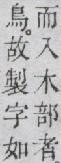 而入木部者
鳥。故製字如